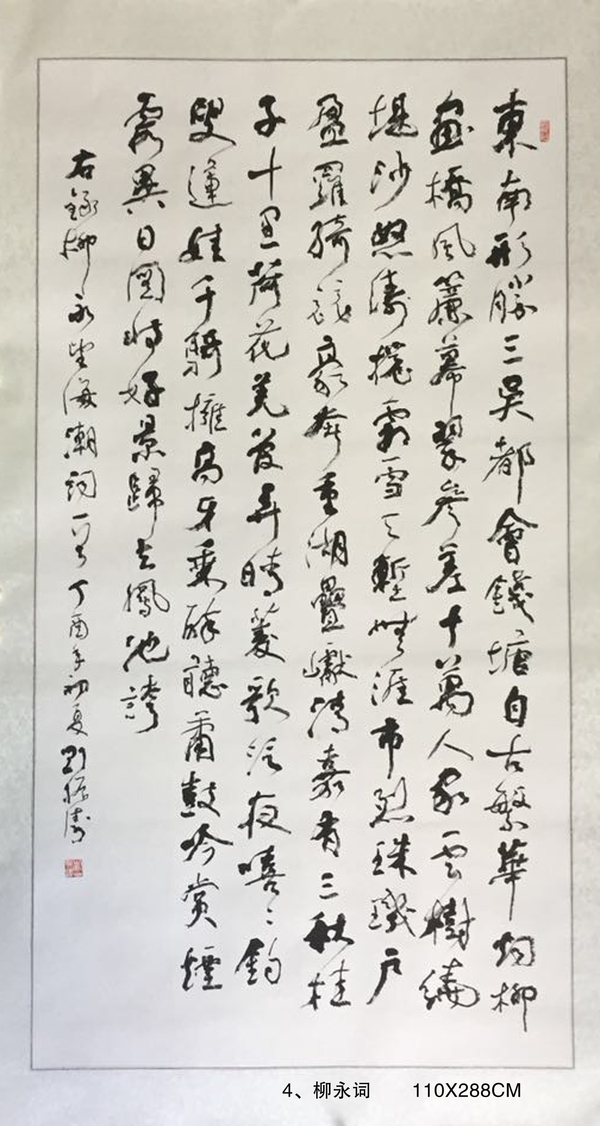 東南形勝三吳都會錢塘自古繁華烟柳
畫橋風簾幕翠參差十萬人家雲樹繞
堤沙怒濤捲霜雪天塹無涯市列珠璣戶
盈羅綺競豪奢重湖疊巘清嘉有三秋桂
子十里荷花羌管弄晴菱歌泛夜嘻〻釣
叟蓮娃千騎擁高牙乘醉聽蕭鼓吟賞煙
霞異日圖將好景歸去鳳池誇
右錄柳永望海潮詞一首丁酉年初夏劉振濤
4、柳永词 110X288CM